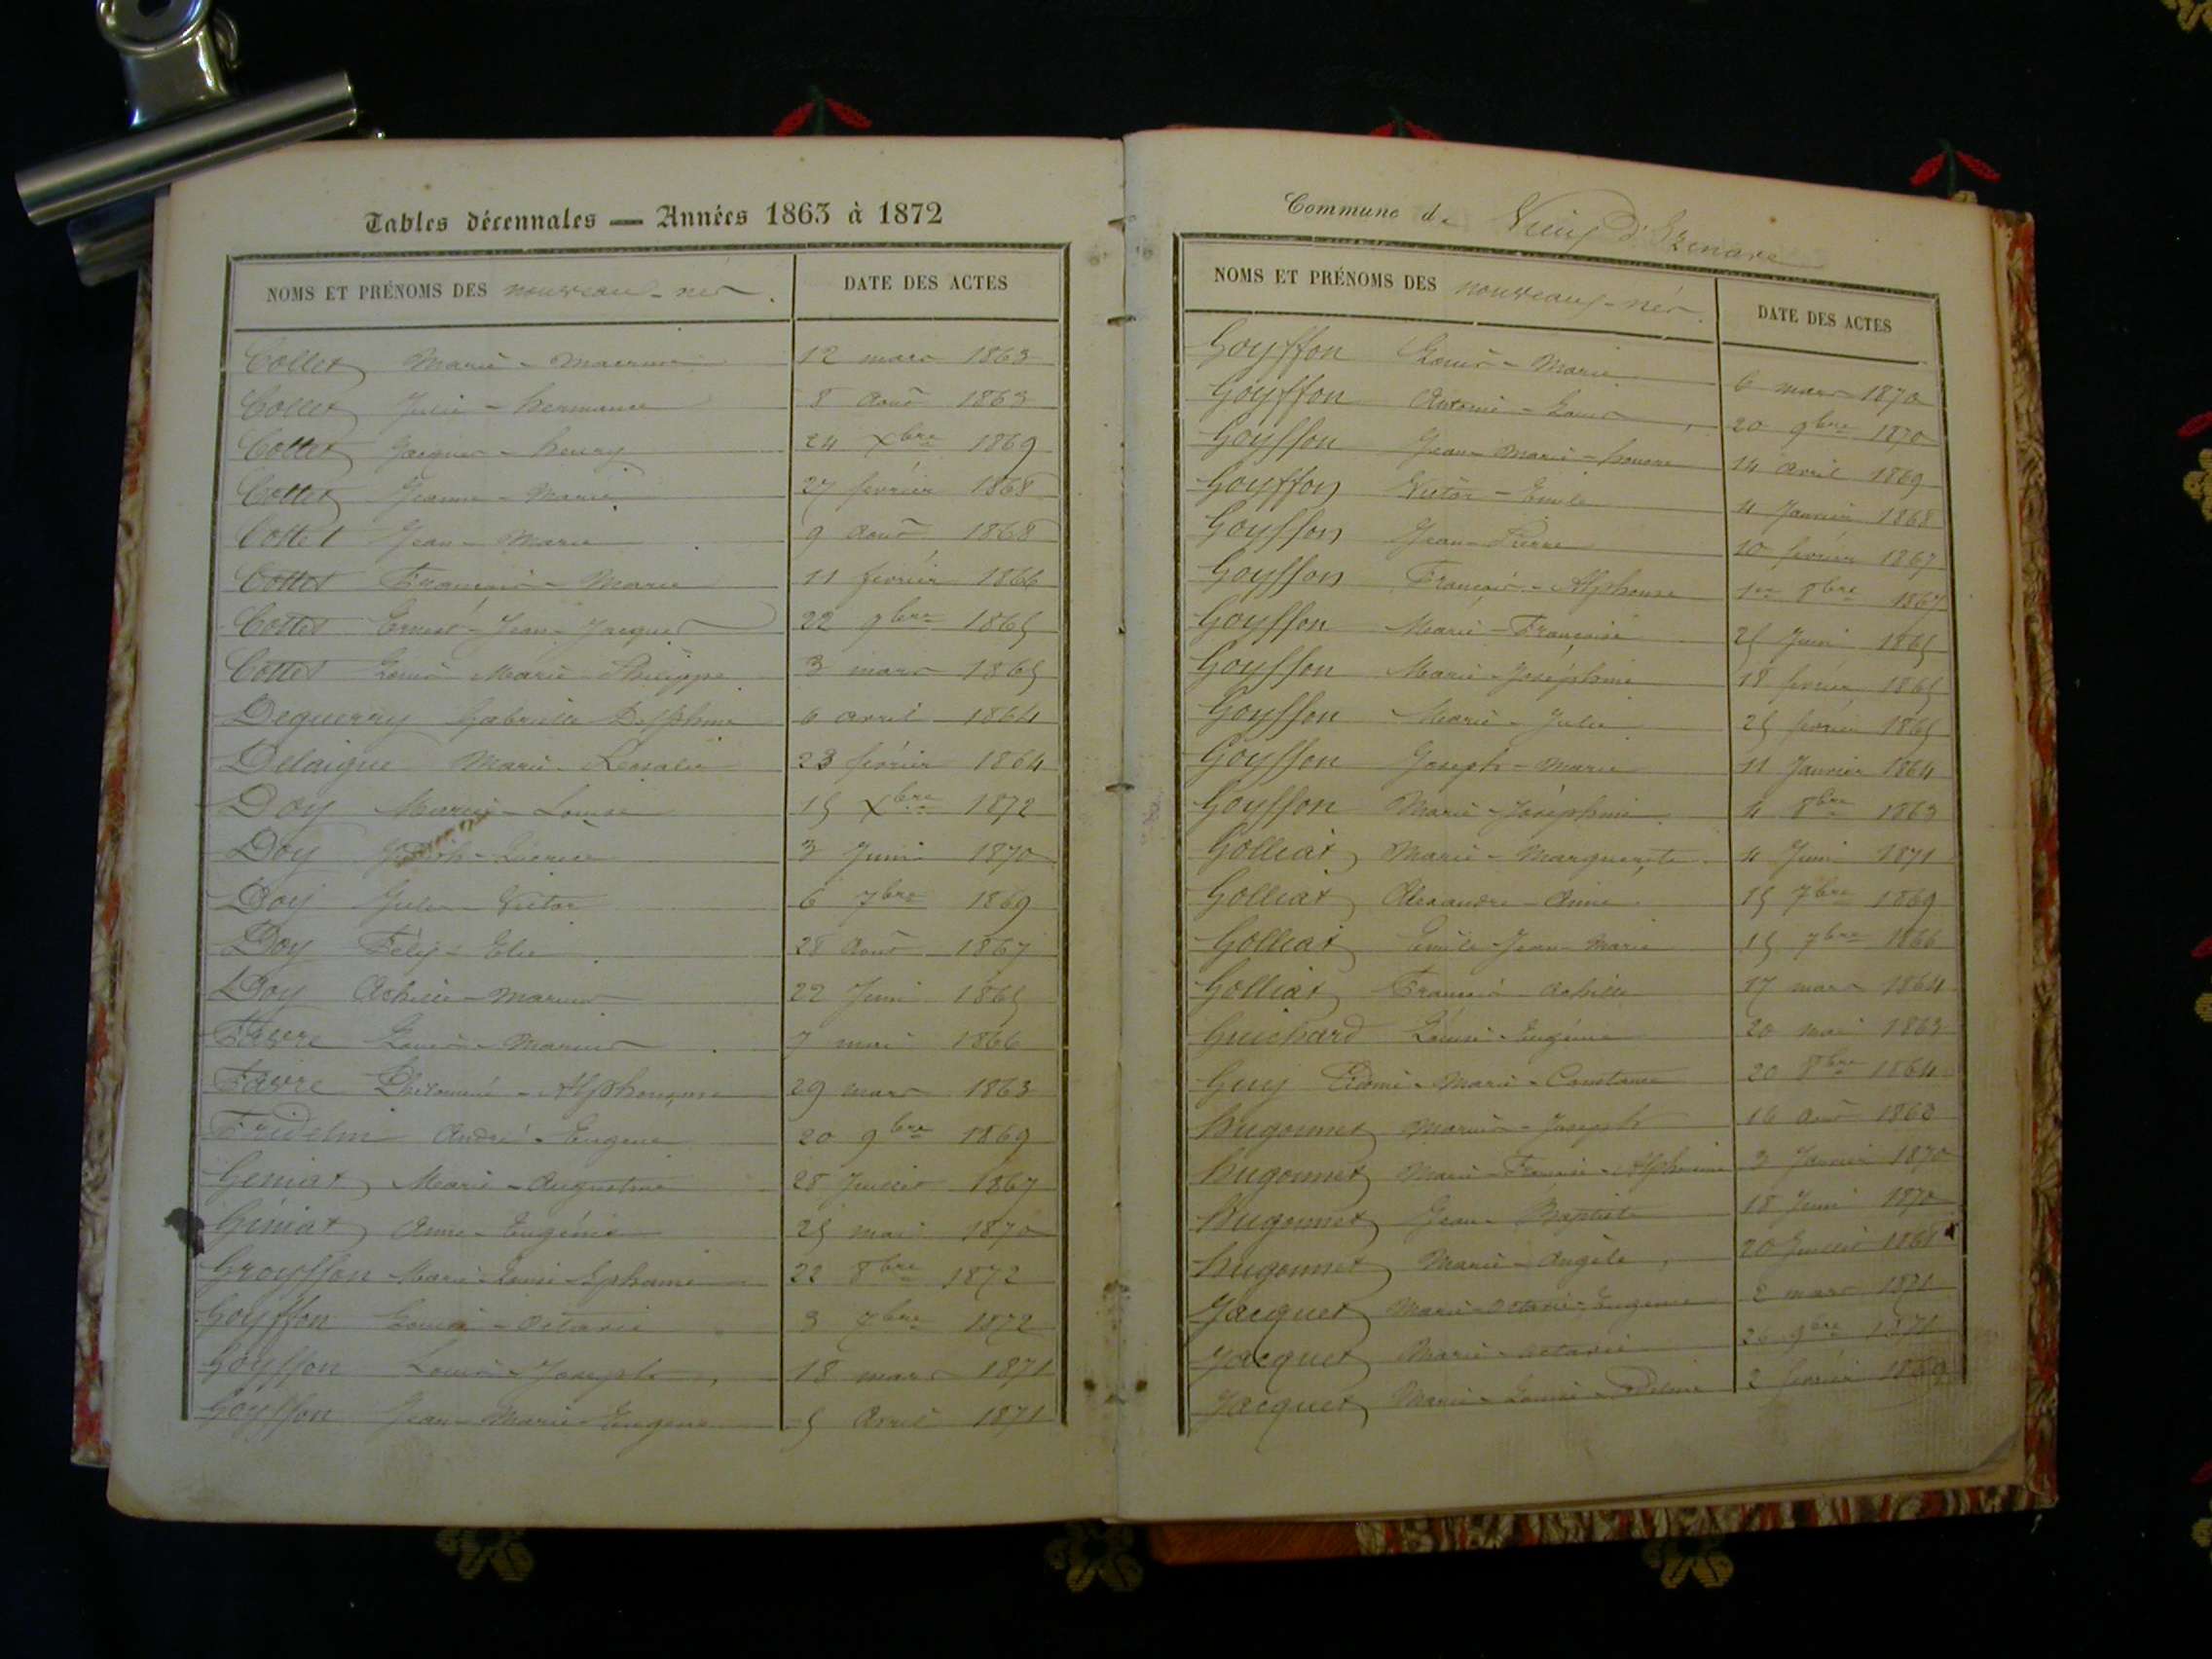 Tables décennales — Années 1863 à 1872
NOMS ET PRÉNOMS DES nouveau-nés. DATE DES ACTES
Collet Marie - 12 mars 1863
Collet Julie - hermance 8 Août 1863
Collet Jacques - henry 24 Xbre 1869
Collet Jeanne - Marie 27 février 1868
Collet Jean - Marie 9 Août 1868
Collet François - Marie 11 février 1866
Collet Ernest - Jean - Jacques 22 9bre 1865
Collet Louis Marie Philippe 3 mars 1865
Deguerry Gabrielle Delphine 6 avril 1864
Delaigue Marie 23 février 1864
Doy Marie - Louise 15 Xbre 1872
Doy 3 Juin 1870
Doy Jules - Victor 6 7bre 1869
Doy Félix - Elie 28 Août 1867
Doy Achille - Marius 22 Juin 1865
Favre Louis - Marius 7 mai 1866
Favre Philomène - Alphonsine 29 mars 1863
Fridelin André - Eugène 20 9bre 1869
Géniat Marie - Augustine 28 Juillet 1867
Géniat Anne - Eugénie 25 mai 1870
Groyffon Marie 22 8bre 1872
Goyffon Louis - Octavie 3 7bre 1872
Goyffon Louis - Joseph 18 mars 1871
Goyffon Jean - Marie - Eugène 5 Avril 1871
Commune de Vieux d'Izenave
NOMS ET PRÉNOMS DES nouveaux-nés. DATE DES ACTES
Goyffon Louis - Marie 6 mars 1870
Goyffon Antoine - Louis 20 9bre 1870
Goyffon Jean - Marie - honoré 14 avril 1869
Goyffon Victor - Emile 4 Janvier 1868
Goyffon Jean - Pierre 10 février 1867
Goyffon François - Alphonse 1er 8bre 1867
Goyffon Marie - Françoise 25 Juin 1865
Goyffon Marie - Joséphine 18 février 1865
Goyffon Marie - Julie 25 février 1865
Goyffon Joseph - Marie 11 Janvier 1864
Goyffon Marie - Joséphine 4 8bre 1863
Golliat Marie - Marguerite 4 Juin 1871
Golliat Alexandre - Aimé 15 7bre 1869
Golliat Emile - Jean - Marie 15 7bre 1866
Golliat François - Achille 17 mars 1864
Guichard Louise - Eugénie 20 mai 1863
Guy Marie - Constance 20 8bre 1864
hugonnet Marius - Joseph 16 Août 1863
hugonnet Marie - Alphonsine 3 Janvier 1870
hugonnet Jean - Baptiste 18 Juin 1870
hugonnet Marie - Angèle 20 Juillet
Jacquet Marie - Octavie - Eugénie 2 mars 1871
Jacquet Marie - Octavie 26 9bre 1871
Jacquet Marie - Louise 2 février 1869